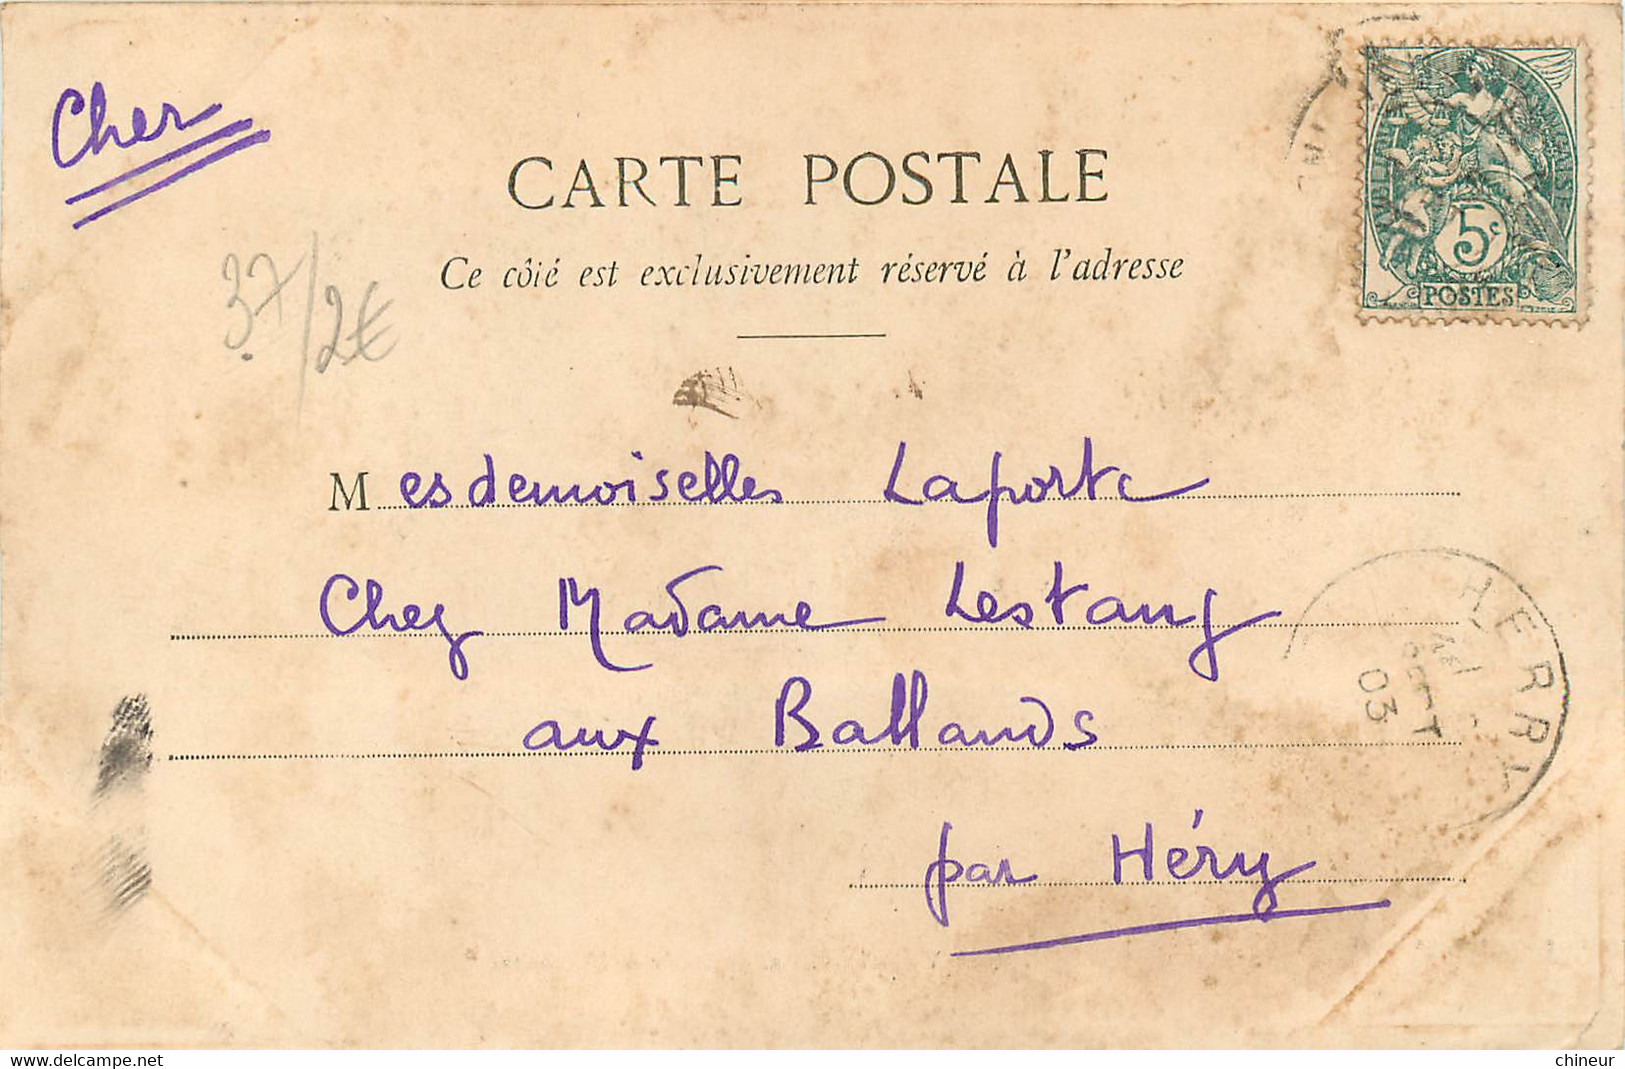 Cher
CARTE POSTALE
Ce côté est exclusivement réservé à l'adresse
37/2€
5c
POSTES
Mesdemoiselles Laporte
Chez Madame Lestang
aux Ballands
par Héry
HERRY
SEPT
03
delcampe.net
chineur